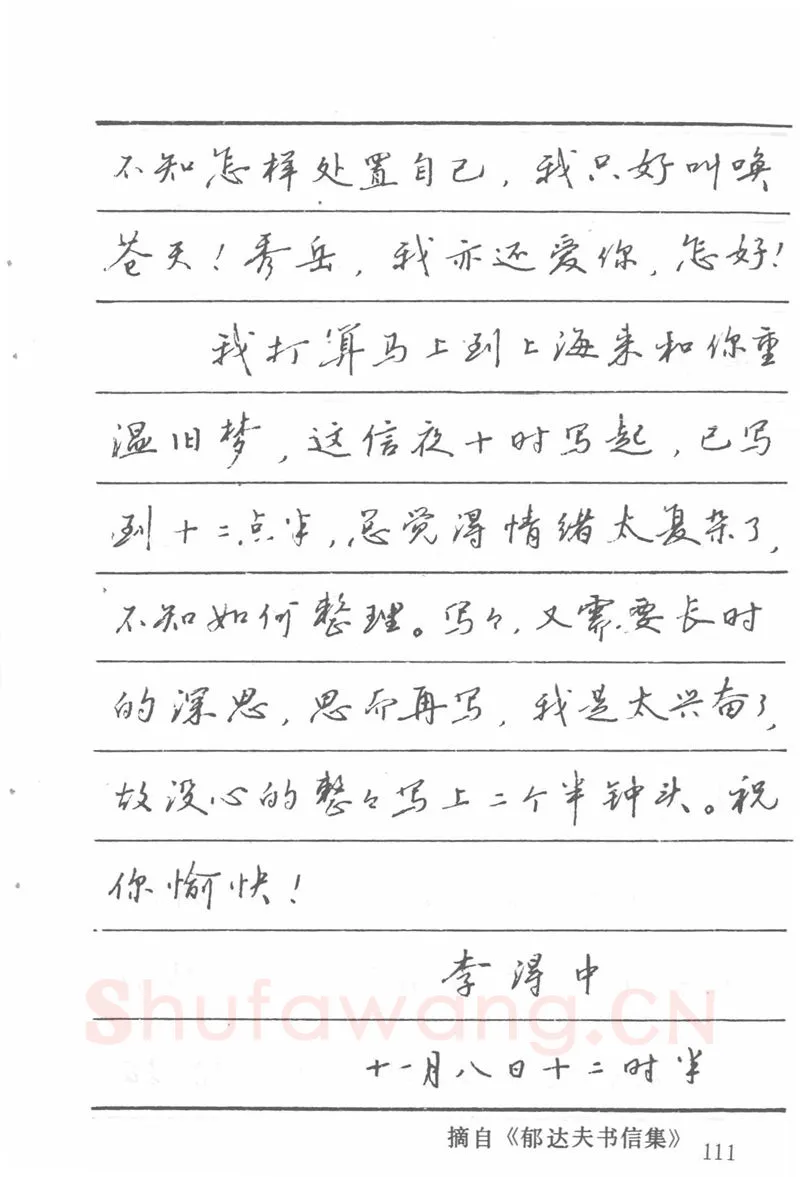 不知怎样处置自己，我只好叫唤
苍天！秀岳，我亦还爱你，怎好！
我打算马上到上海来和你重
温旧梦，这信夜十时写起，已写
到十二点半，总觉得情绪太复杂了，
不知如何整理。写々，又需要长时
的深思，思而再写，我是太兴奋了，
故没心的整々写上二个半钟头。祝
你愉快！
李得中
十一月八日十二时半
摘自《郁达夫书信集》
111
Shufawang.CN